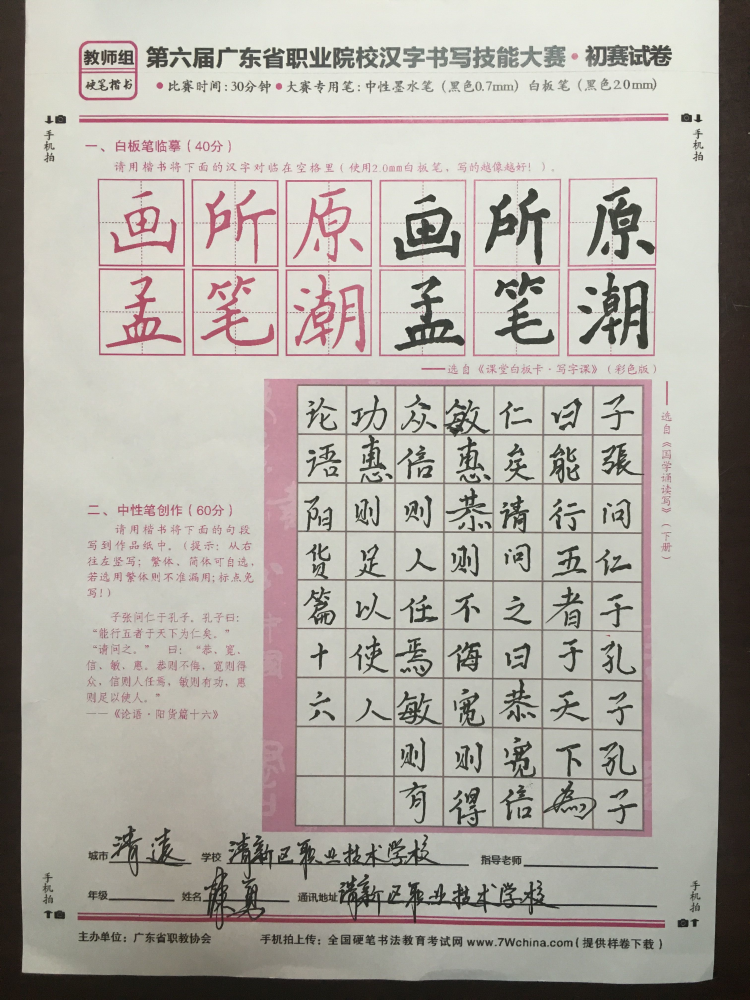 教师组
硬笔楷书
第六届广东省职业院校汉字书写技能大赛·初赛试卷
●比赛时间:30分钟 ●大赛专用笔:中性墨水笔(黑色0.7mm) 白板笔(黑色2.0mm)
手机拍
手机拍
一、白板笔临摹(40分)
请用楷书将下面的汉字对临在空格里(使用2.0mm白板笔,写的越像越好!)。
画所原画所原
孟笔潮孟笔潮
——选自《课堂白板卡·写字课》(彩色版)
——选自《国学诵读写》(下册)
二、中性笔创作(60分)
请用楷书将下面的句段
写到作品纸中。(提示:从右
往左竖写;繁体、简体可自选,
若选用繁体则不准漏用;标点免
写!)
子张问仁于孔子。孔子曰:
“能行五者于天下为仁矣。”
“请问之。” 曰:“恭、宽、
信、敏、惠。恭则不侮,宽则得
众,信则人任焉,敏则有功,惠
则足以使人。”
——《论语·阳货篇十六》
子張问仁于孔子孔子
曰能行五者于天下為
仁矣请问之曰恭宽信
敏惠恭则不侮宽则得
众信则人任焉敏则有
功惠则足以使人
论语阳货篇十六
城市 清远 学校 清新区职业技术学校 指导老师
年级 姓名 通讯地址 清新区职业技术学校
手机拍
手机拍
主办单位:广东省职教协会 手机拍上传:全国硬笔书法教育考试网 www.7Wchina.com(提供样卷下载)